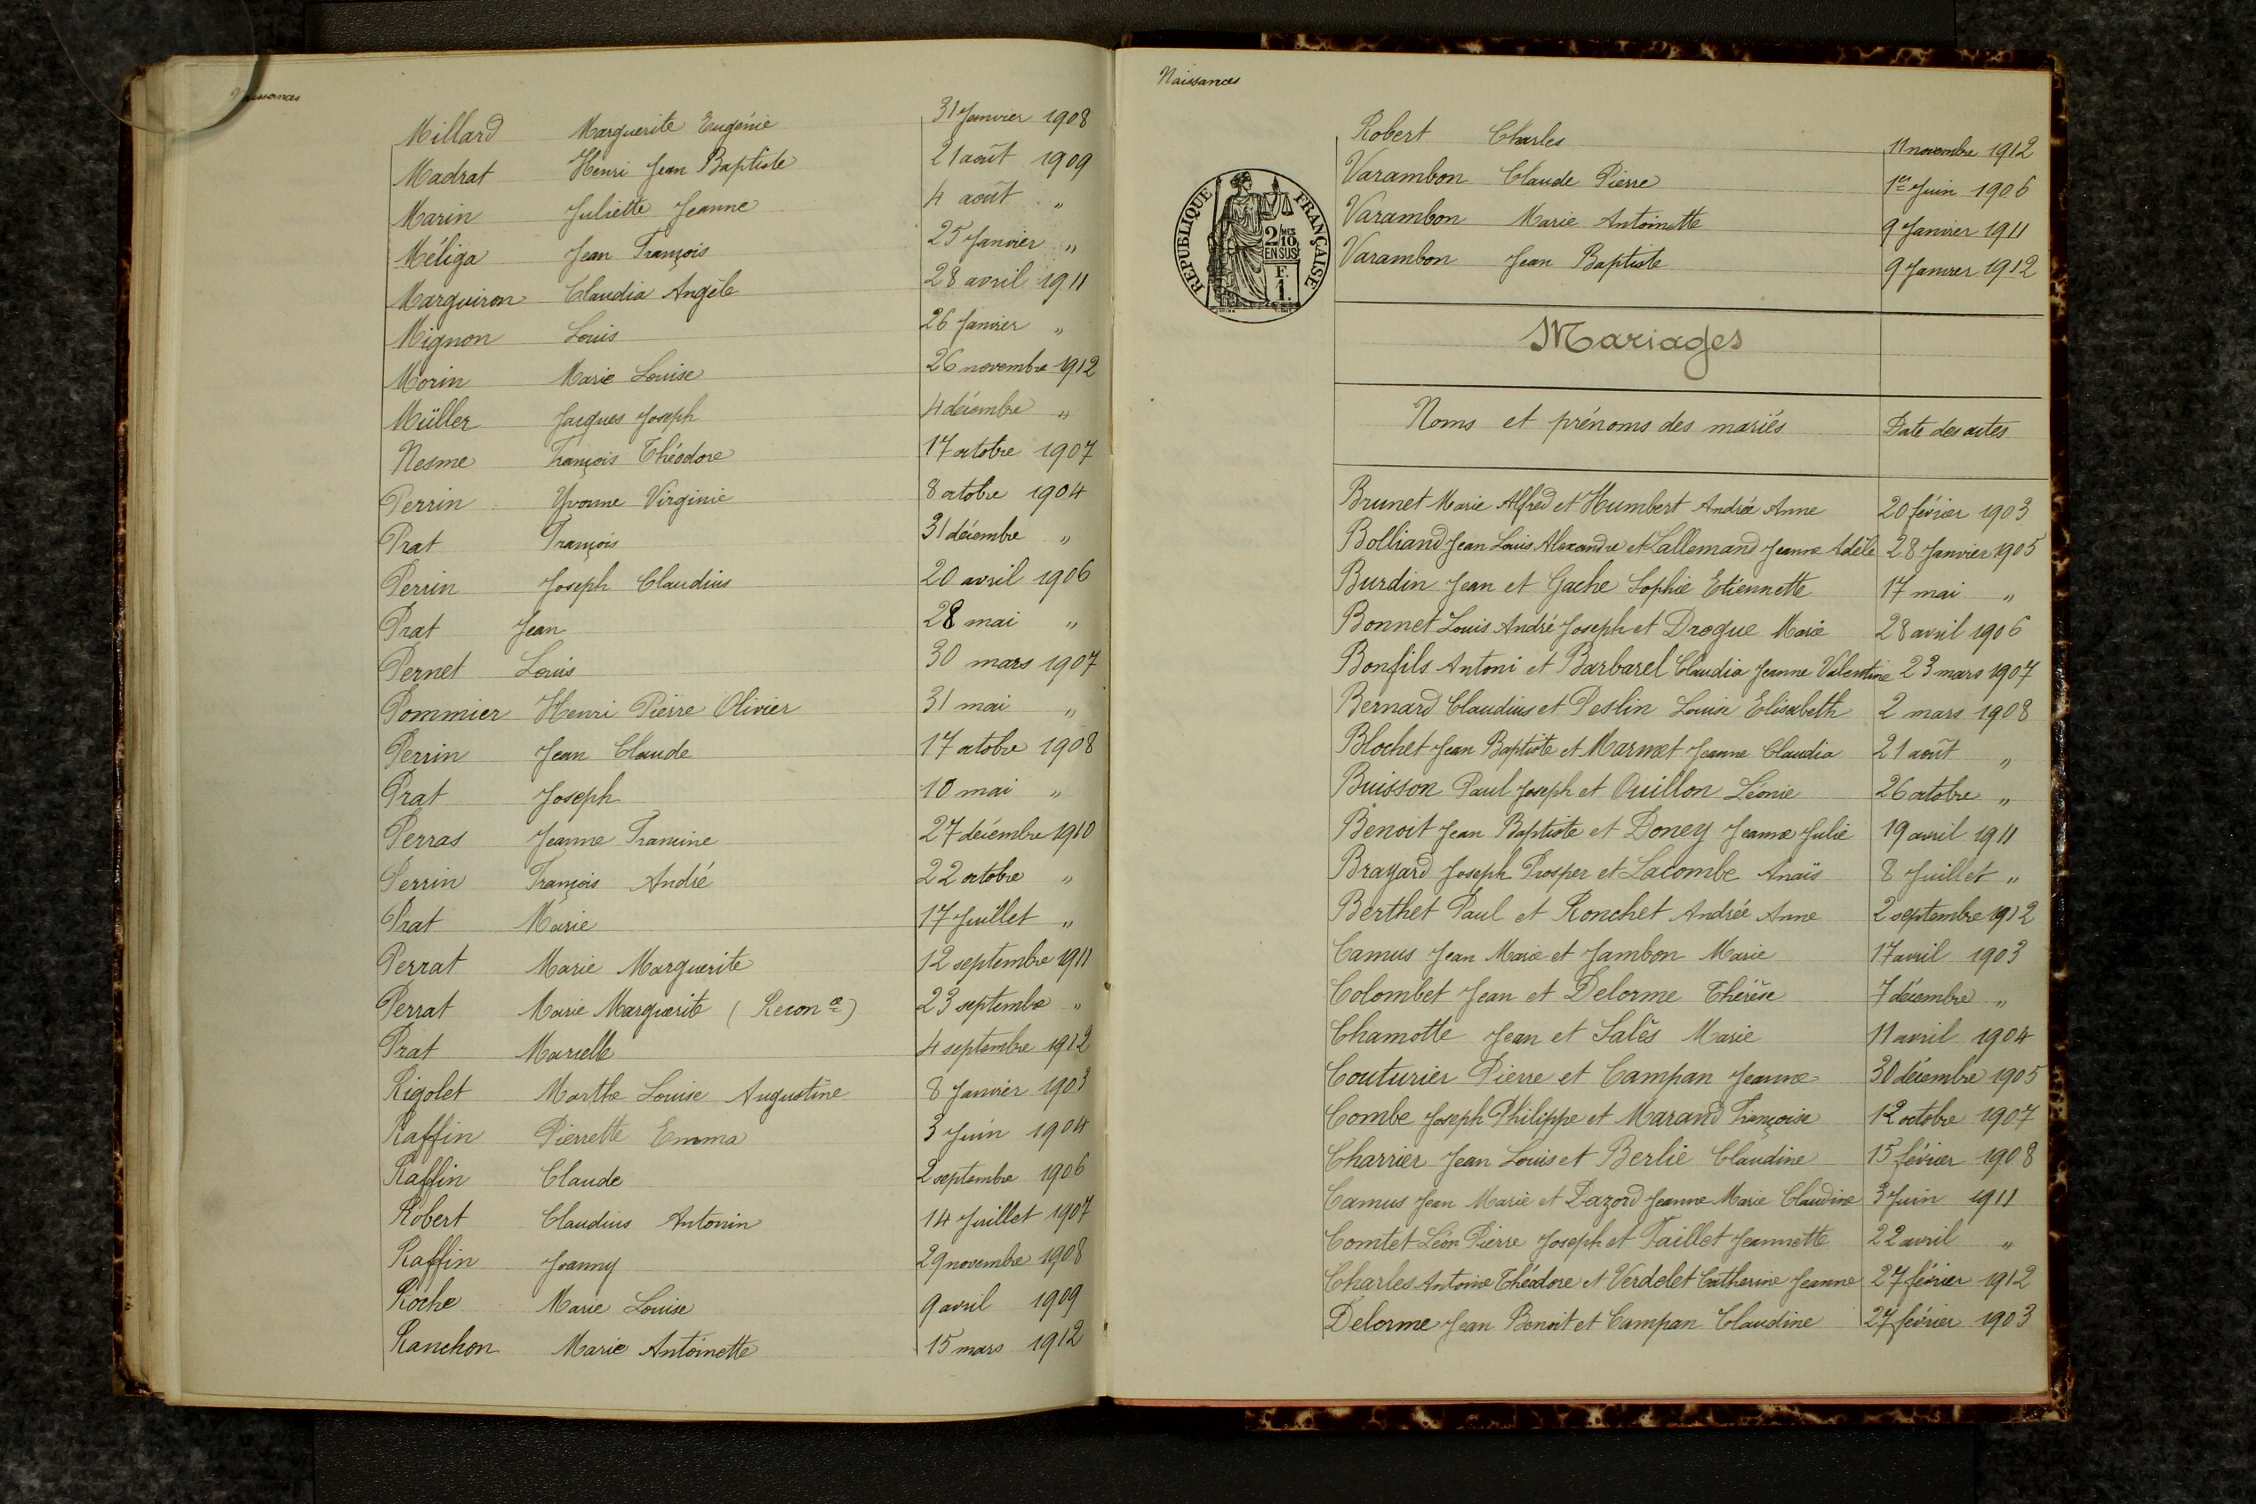 Naissances
Millard Marguerite Eugénie 31 Janvier 1908
Madrat Henri Jean Baptiste 21 août 1909
Marin Juliette Jeanne 4 août "
Méliga Jean François 25 Janvier "
Marguiron Claudia Angèle 28 avril 1911
Mignon Louis 26 Janvier "
Morin Marie Louise 26 novembre 1912
Müller Jacques Joseph 4 décembre "
Nesme François Théodore 17 octobre 1907
Perrin Yvonne Virginie 8 octobre 1904
Prat François 31 décembre "
Perrin Joseph Claudius 20 avril 1906
Prat Jean 28 mai "
Pernet Louis 30 mars 1907
Pommier Henri Pierre Olivier 31 mai "
Perrin Jean Claude 17 octobre 1908
Prat Joseph 10 mai "
Perras Jeanne Francine 27 décembre 1910
Perrin François André 22 octobre "
Prat Marie 17 Juillet "
Perrat Marie Marguerite 12 septembre 1911
Perrat Marie Marguerite (Recon ce) 23 septembre "
Prat Marcelle 4 septembre 1912
Rigolet Marthe Louise Augustine 8 Janvier 1903
Raffin Pierrette Emma 3 Juin 1904
Raffin Claude 2 septembre 1906
Robert Claudius Antonin 14 Juillet 1907
Raffin Joanny 29 novembre 1908
Roche Marie Louise 9 avril 1909
Ranchon Marie Antoinette 15 mars 1912
Naissances
RÉPUBLIQUE FRANÇAISE
2/10 MES
EN SUS
F.
1.
Robert Charles 11 novembre 1912
Varambon Claude Pierre 1er Juin 1906
Varambon Marie Antoinette 9 Janvier 1911
Varambon Jean Baptiste 9 Janvier 1912
Mariages
Noms et prénoms des mariés Date des actes
Brunet Marie Alfred et Humbert Andrée Anne 20 février 1903
Bolliand Jean Louis Alexandre et Lallemand Jeanne Adèle 28 Janvier 1905
Burdin Jean et Gache Sophie Etiennette 17 mai "
Bonnet Louis André Joseph et Drogue Marie 28 avril 1906
Bonfils Antoni et Barbarel Claudia Jeanne Valentine 23 mars 1907
Bernard Claudius et Peslin Louise Elisabeth 2 mars 1908
Blochet Jean Baptiste et Marmet Jeanne Claudia 21 août "
Buisson Paul Joseph et Ouillon Léonie 26 octobre "
Benoit Jean Baptiste et Doney Jeanne Julie 19 avril 1911
Brayard Joseph Prosper et Lacombe Anaïs 8 Juillet "
Berthet Paul et Ronchet Andrée Anne 2 septembre 1912
Camus Jean Marie et Jambon Marie 17 avril 1903
Colombet Jean et Delorme Thérèse 7 décembre "
Chamotte Jean et Salès Marie 11 avril 1904
Couturier Pierre et Campan Jeanne 30 décembre 1905
Combe Joseph Philippe et Marand Françoise 12 octobre 1907
Charrier Jean Louis et Berlie Claudine 15 février 1908
Camus Jean Marie et Dazord Jeanne Marie Claudine 3 Juin 1911
Comtet Léon Pierre Joseph et Paillet Jeannette 22 avril "
Charles Antoine Théodore et Verdelet Catherine Jeanne 27 février 1912
Delorme Jean Benoit et Campan Claudine 27 février 1903